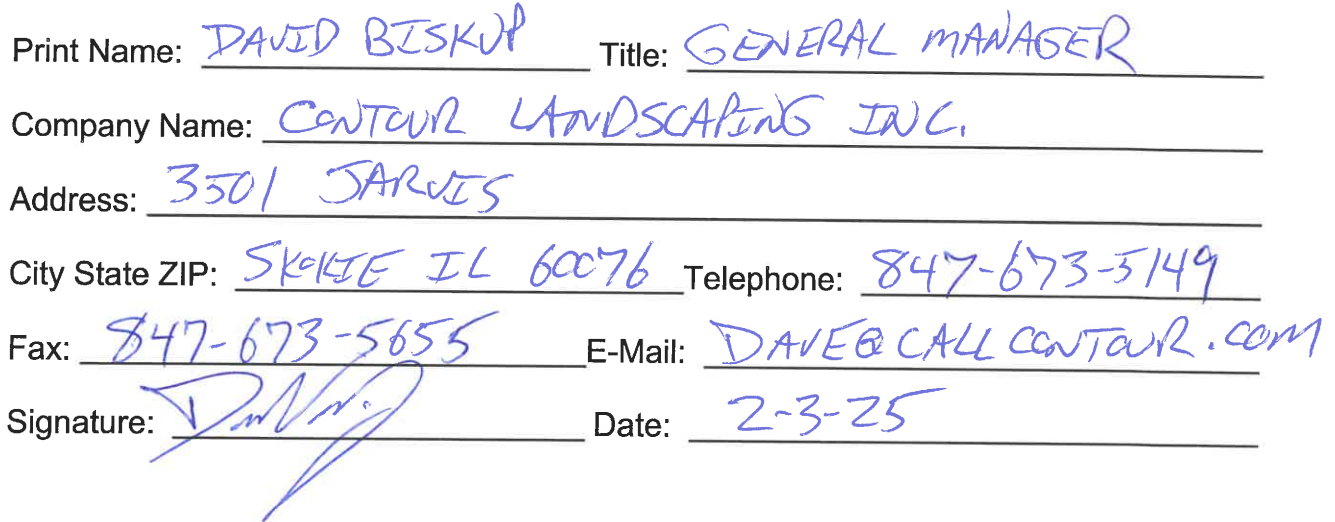 Print Name: DAVID BISKUP Title: GENERAL MANAGER
Company Name: CONTOUR LANDSCAPING INC.
Address: 3501 JARVIS
City State ZIP: SKOKIE IL 60076 Telephone: 847-673-5149
Fax: 847-673-5655 E-Mail: DAVE@CALLCONTOUR.COM
Signature: Date: 2-3-25